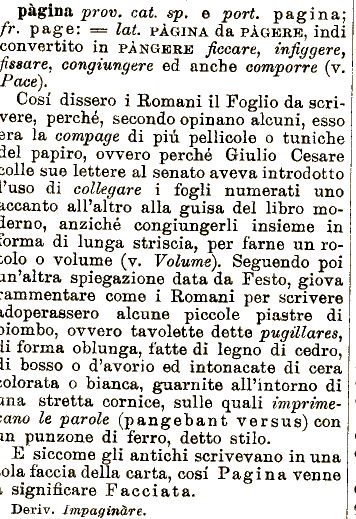 pàgina prov. cat. sp. e port. pagina;
fr. page: = lat. PÀGINA da PÀGERE, indi
convertito in PÀNGERE ficcare, infiggere,
fissare, congiungere ed anche comporre (v.
Pace).
Cosí dissero i Romani il Foglio da scri-
vere, perché, secondo opinano alcuni, esso
era la compage di piú pellicole o tuniche
del papiro, ovvero perché Giulio Cesare
colle sue lettere al senato aveva introdotto
l'uso di collegare i fogli numerati uno
accanto all'altro alla guisa del libro mo-
derno, anziché congiungerli insieme in
forma di lunga striscia, per farne un ro-
tolo o volume (v. Volume). Seguendo poi
un'altra spiegazione data da Festo, giova
rammentare come i Romani per scrivere
adoperassero alcune piccole piastre di
piombo, ovvero tavolette dette pugillares,
di forma oblunga, fatte di legno di cedro,
di bosso o d'avorio ed intonacate di cera
colorata o bianca, guarnite all'intorno di
una stretta cornice, sulle quali imprime-
vano le parole (pangebant versus) con
un punzone di ferro, detto stilo.
E siccome gli antichi scrivevano in una
sola faccia della carta, cosí Pagina venne
a significare Facciata.
Deriv. Impaginàre.